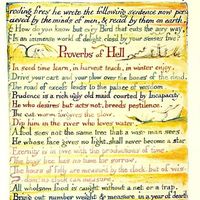 roding fires he wrote the following sentence now per
ceived by the minds of men, & read by them on earth.
How do you know but ev'ry Bird that cuts the airy way,
Is an immense world of delight, clos'd by your senses five?
Proverbs of Hell
In seed time learn, in harvest teach, in winter enjoy.
Drive your cart and your plow over the bones of the dead.
The road of excess leads to the palace of wisdom.
Prudence is a rich ugly old maid courted by Incapacity.
He who desires but acts not, breeds pestilence.
The cut worm forgives the plow.
Dip him in the river who loves water.
A fool sees not the same tree that a wise man sees.
He whose face gives no light, shall never become a star.
Eternity is in love with the productions of time.
The busy bee has no time for sorrow.
The hours of folly are measur'd by the clock, but of wis-
dom: no clock can measure.
All wholsom food is caught without a net or a trap.
Bring out number weight & measure in a year of dearth